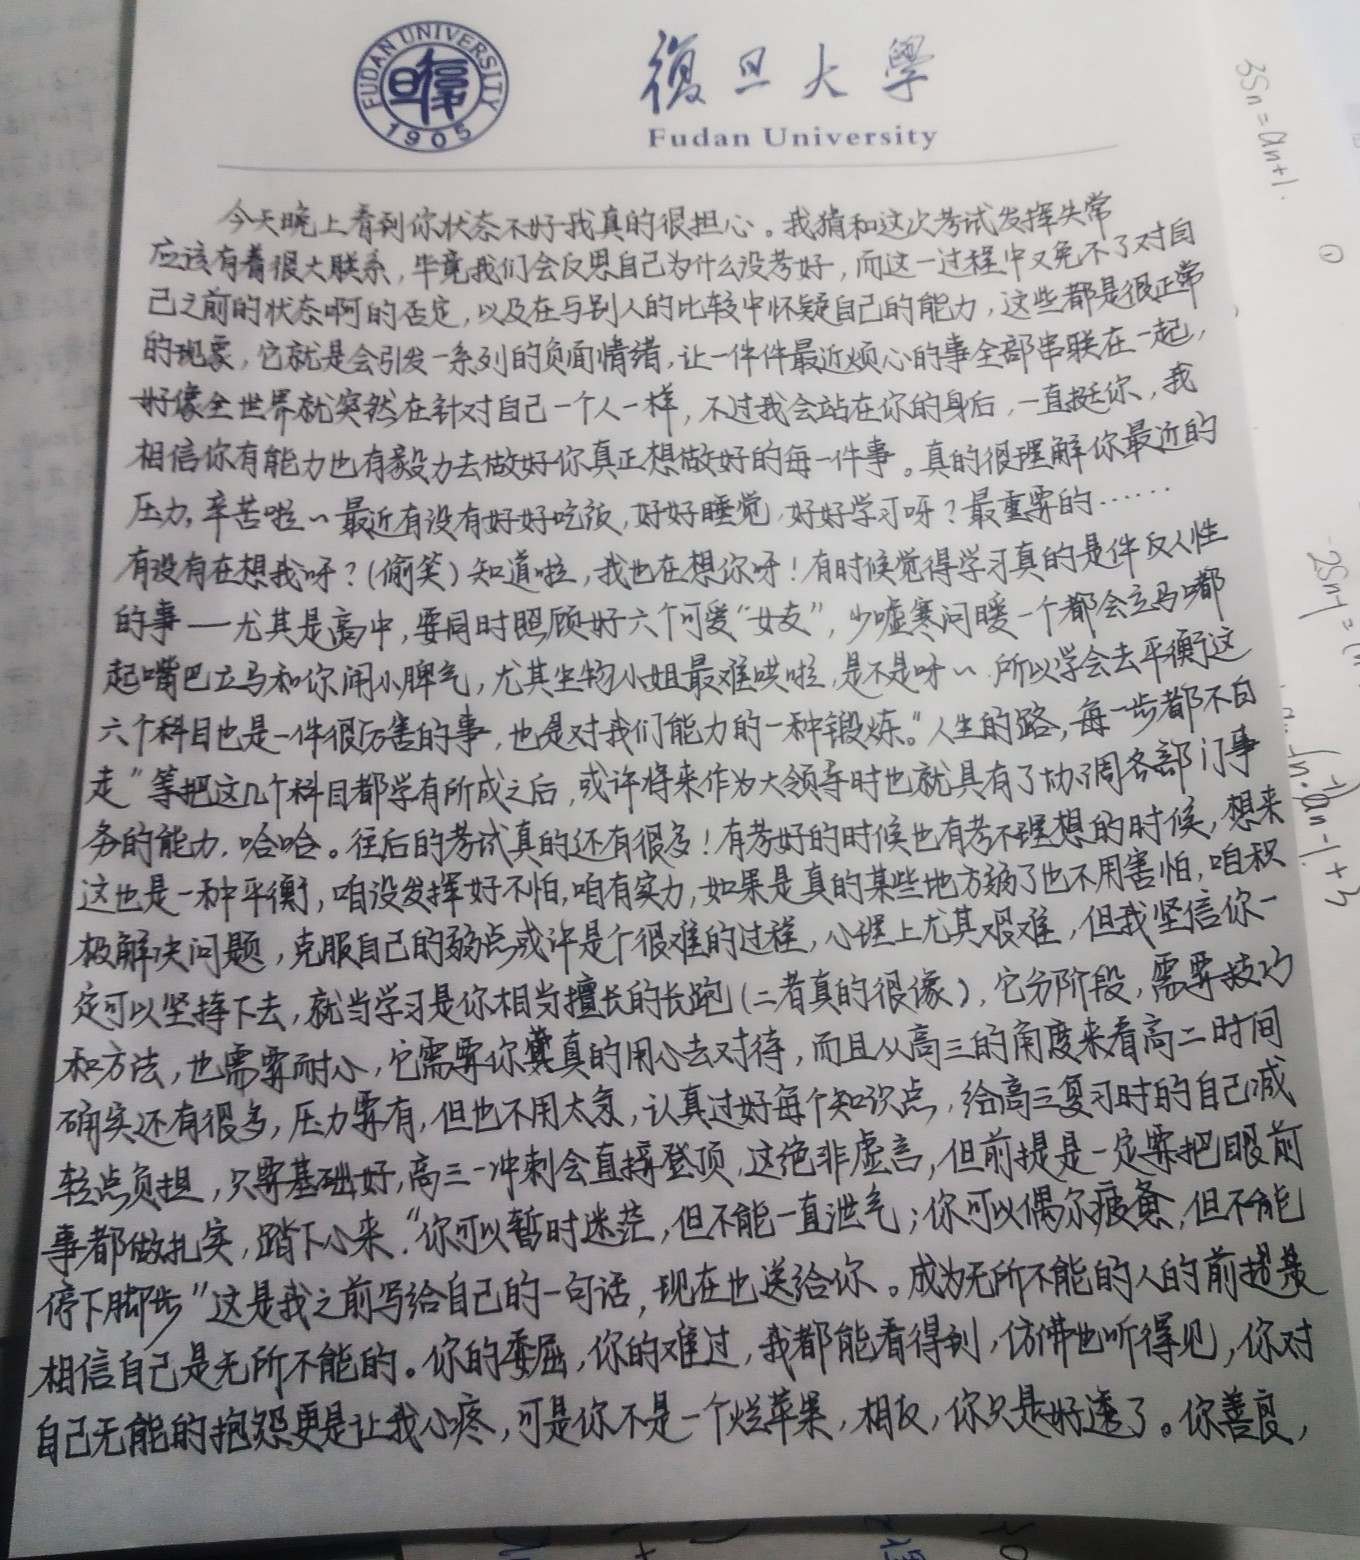 FUDAN UNIVERSITY
1905
復旦大學
Fudan University
今天晚上看到你状态不好我真的很担心。我猜和这次考试发挥失常
应该有着很大联系，毕竟我们会反思自己为什么没考好，而这一过程中又免不了对自
己之前的状态啊的否定，以及在与别人的比较中怀疑自己的能力，这些都是很正常
的现象，它就是会引发一系列的负面情绪，让一件件最近烦心的事全部串联在一起，
好像全世界就突然在针对自己一个人一样，不过我会站在你的身后，一直挺你，我
相信你有能力也有毅力去做好你真正想做好的每一件事。真的很理解你最近的
压力，辛苦啦~最近有没有好好吃饭，好好睡觉，好好学习呀？最重要的……
有没有在想我呀？(偷笑）知道啦，我也在想你呀！有时候觉得学习真的是件反人性
的事——尤其是高中，要同时照顾好六个可爱“女友”，少嘘寒问暖一个都会立马嘟
起嘴巴立马和你闹小脾气，尤其生物小姐最难哄啦，是不是呀~所以学会去平衡这
六个科目也是一件很厉害的事，也是对我们能力的一种锻炼。“人生的路，每一步都不白
走”等把这几个科目都学有所成之后，或许将来作为大领导时也就具有了协调各部门事
务的能力，哈哈。往后的考试真的还有很多！有考好的时候也有考不理想的时候，想来
这也是一种平衡，咱没发挥好不怕，咱有实力，如果是真的某些地方弱了也不用害怕，咱积
极解决问题，克服自己的弱点或许是个很难的过程，心理上尤其艰难，但我坚信你一
定可以坚持下去，就当学习是你相当擅长的长跑（二者真的很像），它分阶段，需要技巧
和方法，也需要耐心，它需要你真真的用心去对待，而且从高三的角度来看高二时间
确实还有很多，压力要有，但也不用太急，认真过好每个知识点，给高三复习时的自己减
轻点负担，只要基础好，高三一冲刺会直接登顶，这绝非虚言，但前提是一定要把眼前
事都做扎实，踏下心来，“你可以暂时迷茫，但不能一直泄气；你可以偶尔疲惫，但不能
停下脚步”这是我之前写给自己的一句话，现在也送给你。成为无所不能的人的前提是
相信自己是无所不能的。你的委屈，你的难过，我都能看得到，仿佛也听得见，你对
自己无能的抱怨更是让我心疼，可是你不是一个烂苹果，相反，你只是好透了。你善良，
3Sn=an+1
①